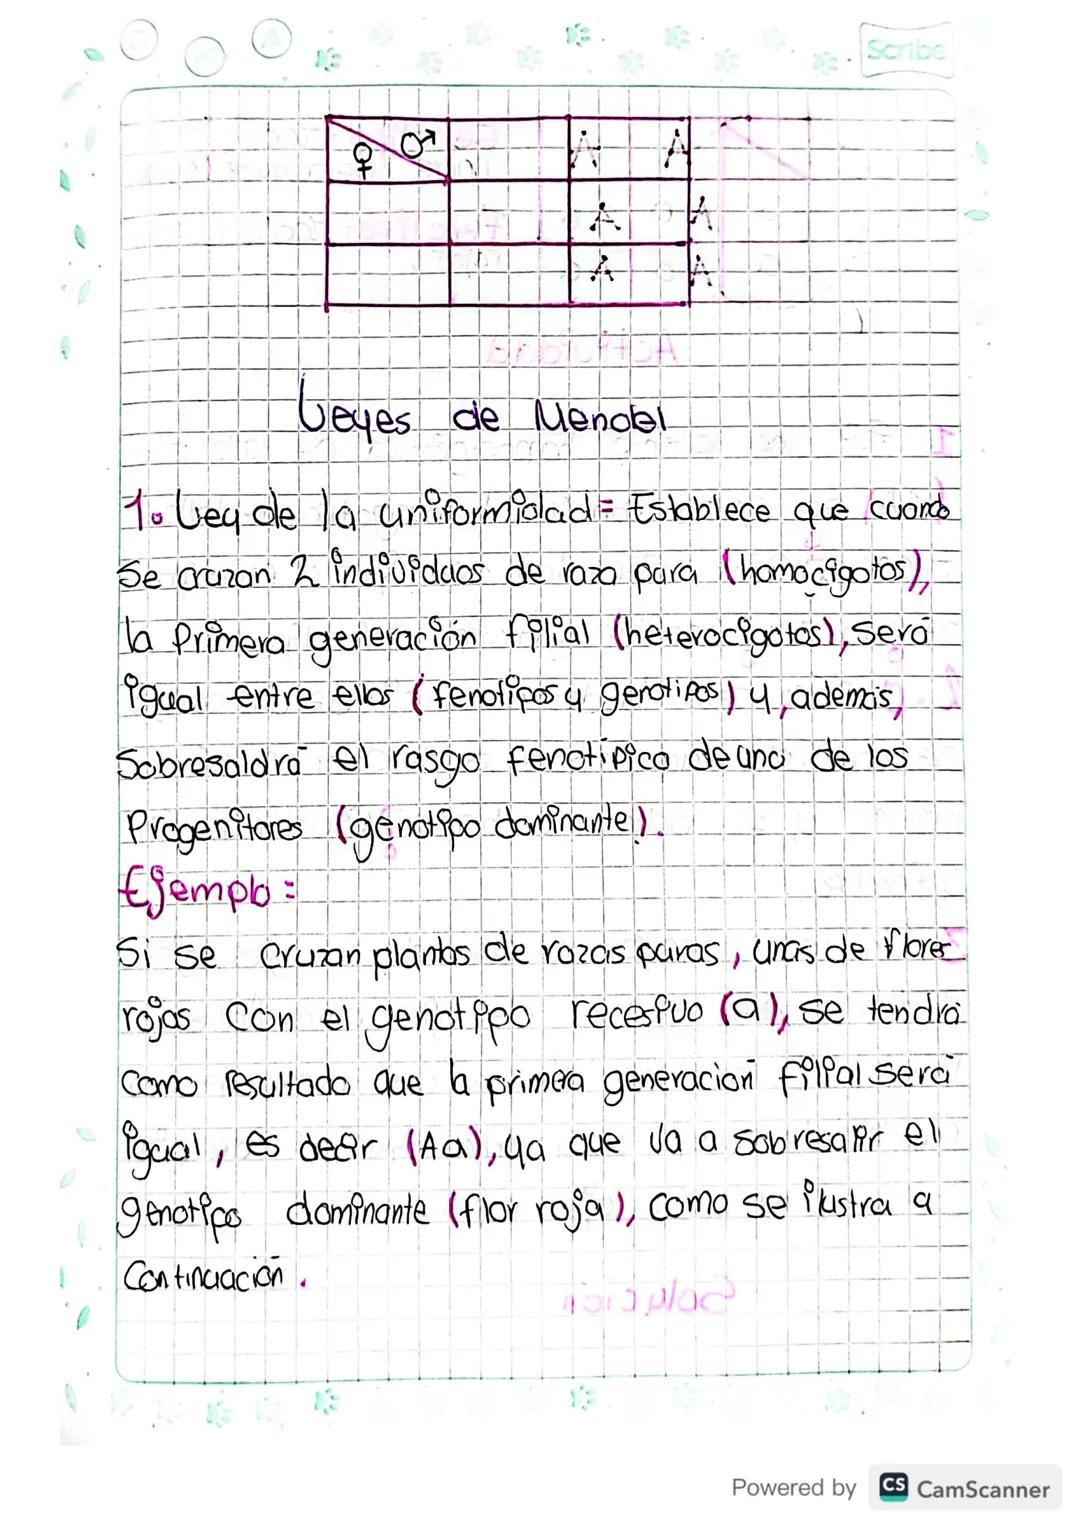 Scribe
♀ ♂ A A
A A
A A
Leyes de Mendel
1. Ley de la uniformidad = Establece que cuando
se cruzan 2 individuos de raza pura (homocigotos),
la primera generación filial (heterocigotos), será
igual entre ellos (fenotipos y genotipos) y, además,
Sobresaldrá el rasgo fenotipico de uno de los
Progenitores (genotipo dominante).
Ejemplo =
Si se cruzan plantas de razas puras, unas de flores
rojas con el genotipo recesivo (a), se tendrá
como resultado que la primera generación filial será
igual, es decir (Aa), ya que va a sobresalir el
genotipo dominante (flor roja), como se ilustra a
Continuación.
Powered by CS CamScanner